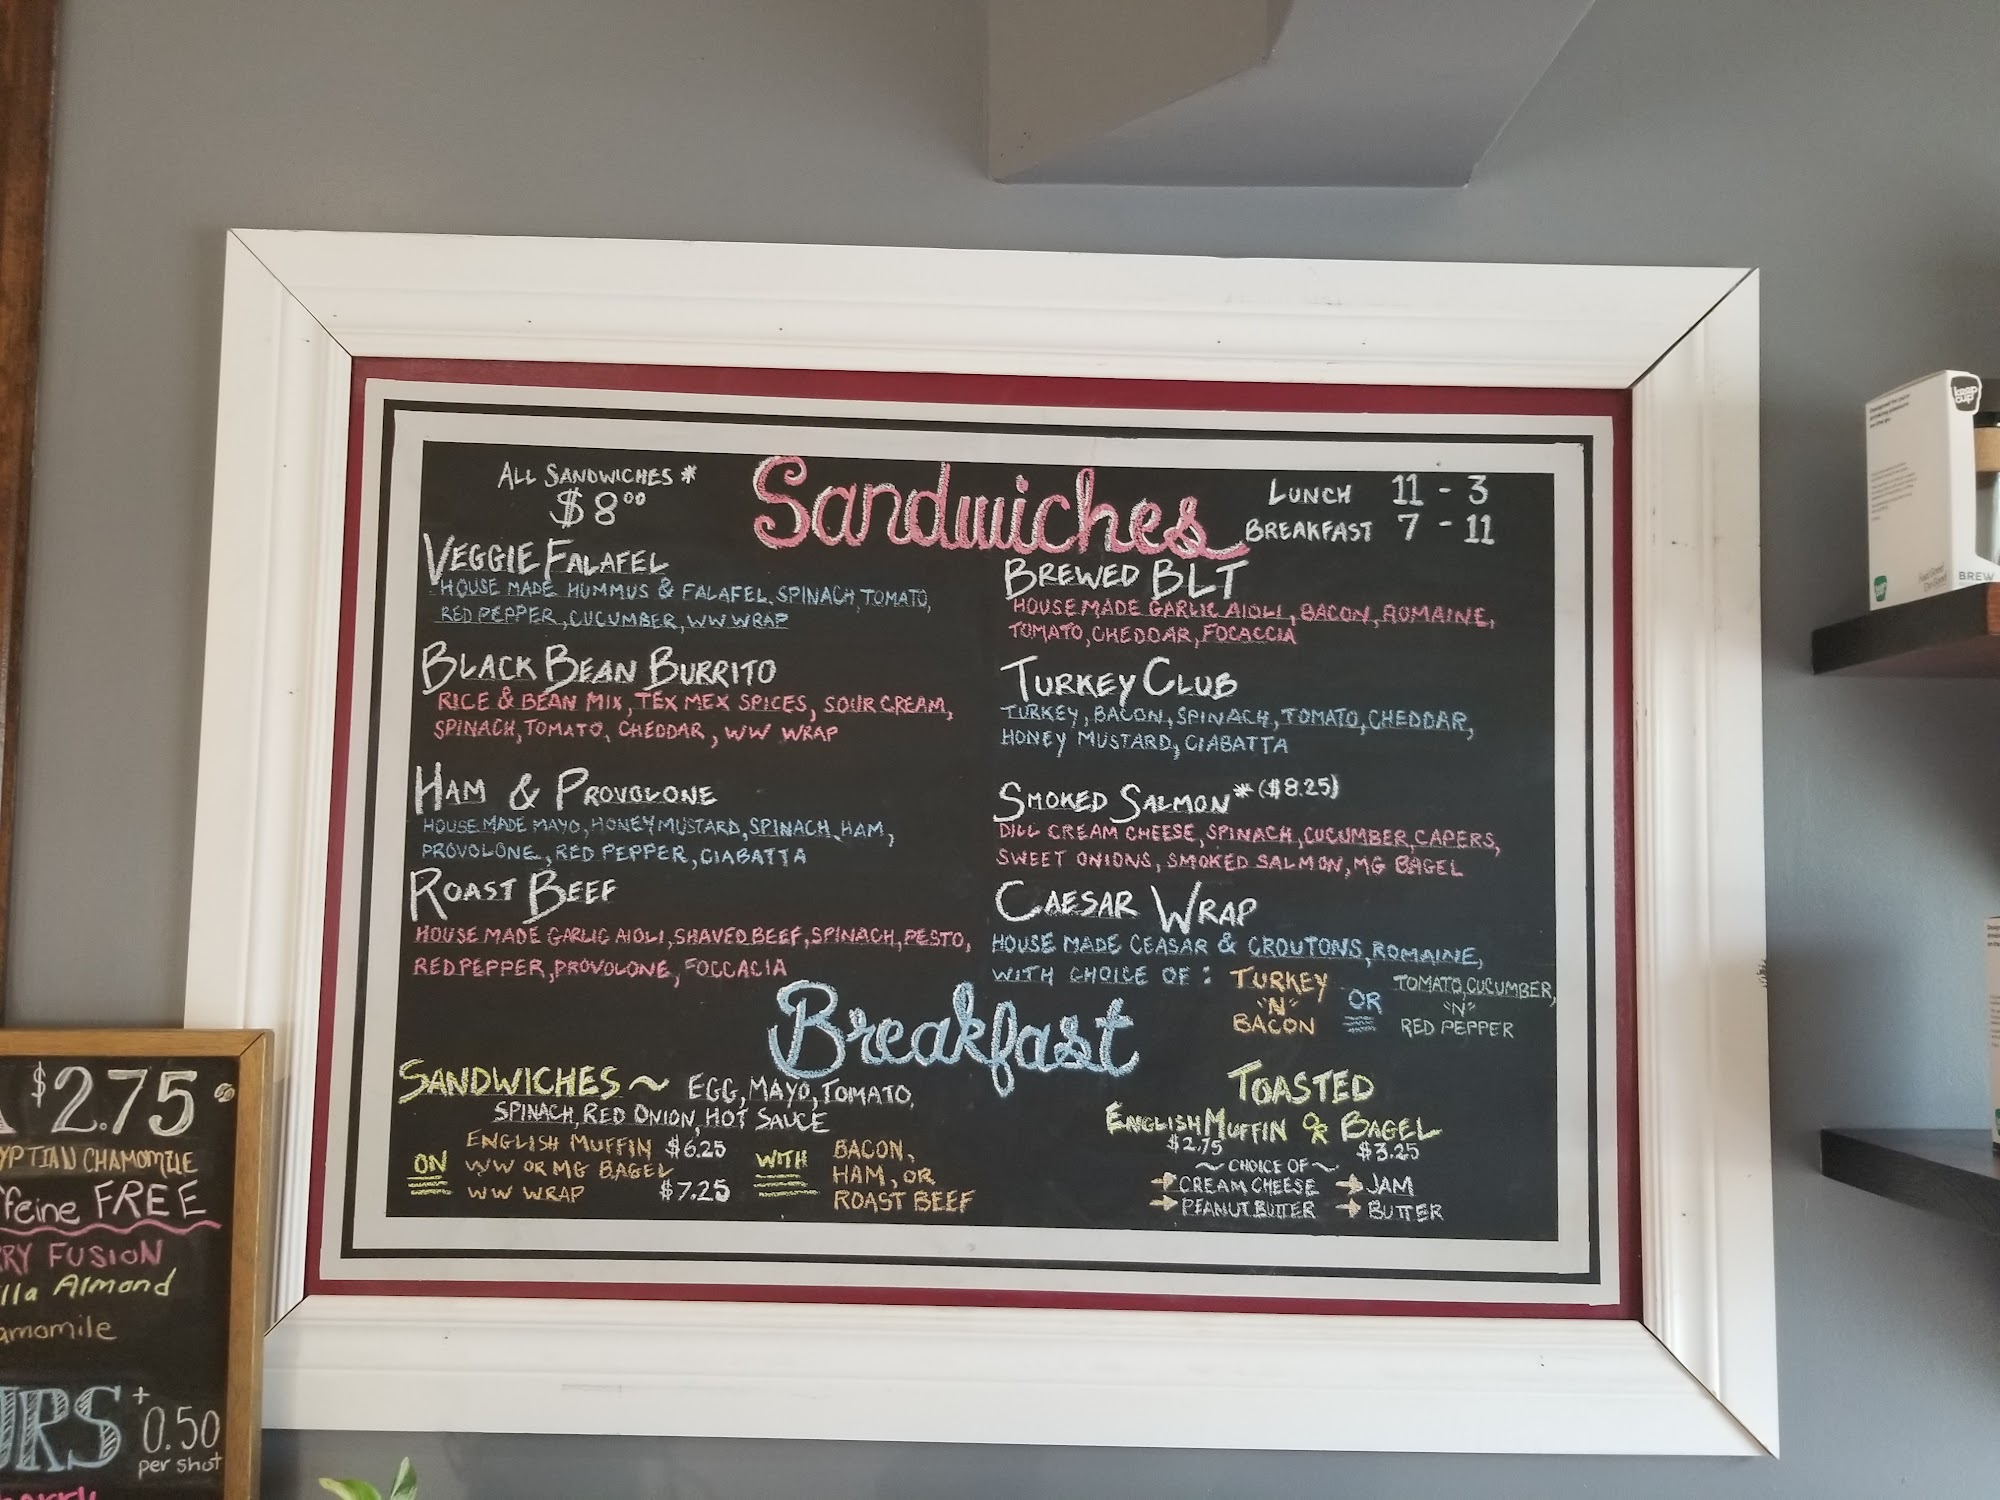 ALL SANDWICHES *
$8.00
Sandwiches
LUNCH 11 - 3
BREAKFAST 7 - 11
VEGGIE FALAFEL
HOUSE MADE HUMMUS & FALAFEL, SPINACH, TOMATO,
RED PEPPER, CUCUMBER, WW WRAP
BLACK BEAN BURRITO
RICE & BEAN MIX, TEX MEX SPICES, SOUR CREAM,
SPINACH, TOMATO, CHEDDAR, WW WRAP
HAM & PROVOLONE
HOUSE MADE MAYO, HONEY MUSTARD, SPINACH, HAM,
PROVOLONE, RED PEPPER, CIABATTA
ROAST BEEF
HOUSE MADE GARLIC AIOLI, SHAVED BEEF, SPINACH, PESTO,
RED PEPPER, PROVOLONE, FOCCACIA
BREWED BLT
HOUSE MADE GARLIC AIOLI, BACON, ROMAINE,
TOMATO, CHEDDAR, FOCACCIA
TURKEY CLUB
TURKEY, BACON, SPINACH, TOMATO, CHEDDAR,
HONEY MUSTARD, CIABATTA
SMOKED SALMON * ($8.25)
DILL CREAM CHEESE, SPINACH, CUCUMBER, CAPERS,
SWEET ONIONS, SMOKED SALMON, MG BAGEL
CAESAR WRAP
HOUSE MADE CEASAR & CROUTONS, ROMAINE,
WITH CHOICE OF : TURKEY "N" BACON OR TOMATO, CUCUMBER, "N" RED PEPPER
Breakfast
SANDWICHES ~ EGG, MAYO, TOMATO,
SPINACH, RED ONION, HOT SAUCE
ON
ENGLISH MUFFIN $6.25
WW OR MG BAGEL
WW WRAP $7.25
WITH
BACON,
HAM, OR
ROAST BEEF
TOASTED
ENGLISH MUFFIN OR BAGEL
$2.75 $3.25
~ CHOICE OF ~
→ CREAM CHEESE → JAM
→ PEANUT BUTTER → BUTTER
$2.75
CHAMOMILE
FREE
FUSION
Almond
+
0.50
per shot
keep
cup
BREW